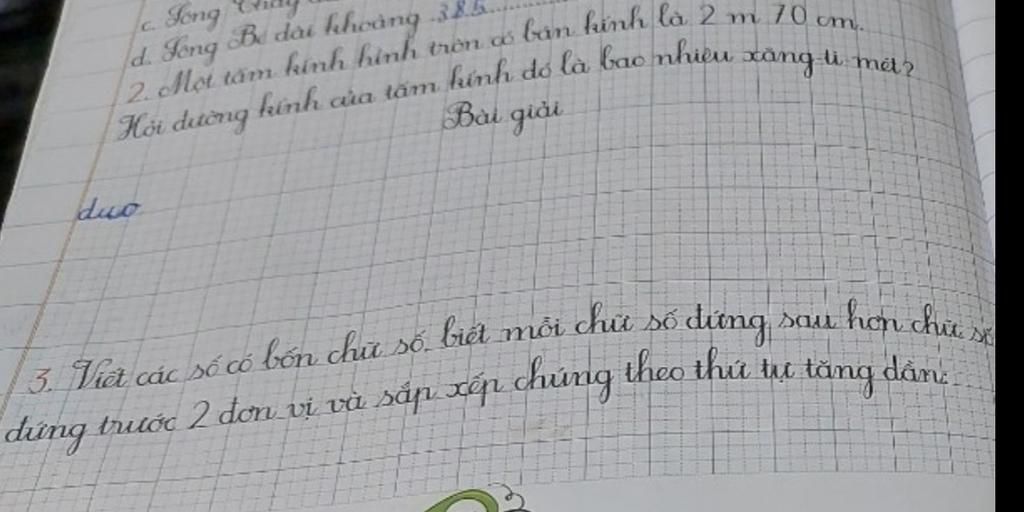 c. Sông
d. Sông Bé dài khoảng 385
2. Một tấm hình hình tròn có bán kính là 2 m 70 cm.
Hỏi đường kính của tấm hình đó là bao nhiêu xăng-ti-mét?
Bài giải
duo
3. Viết các số có bốn chữ số, biết mỗi chữ số đứng sau hơn chữ số
đứng trước 2 đơn vị và sắp xếp chúng theo thứ tự tăng dần.